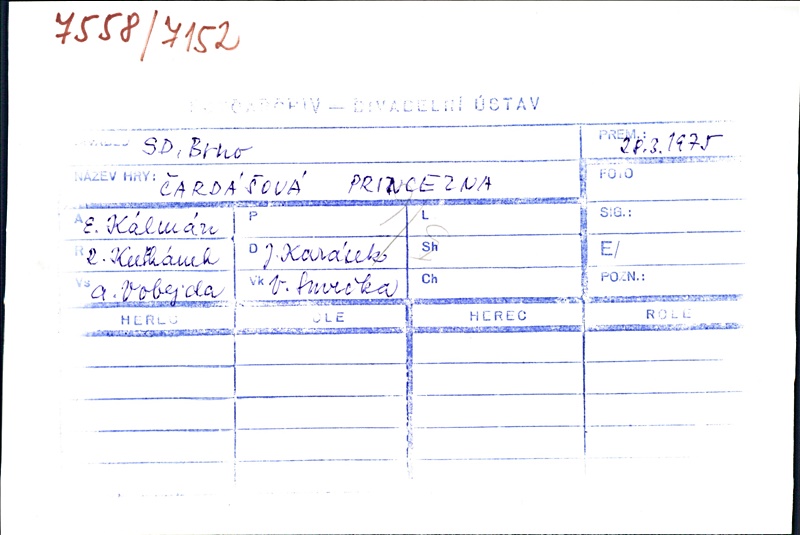 7558/7152
FOTOARCHIV — DIVADELNÍ ÚSTAV
SD, Brno
PREM.: 28.3.1975
NÁZEV HRY: ČARDÁŠOVÁ PRINCEZNA
FOTO
A E. Kálmán P L SIG.:
R Z. Kuthánek D J. Karásek Sh E/
Vs A. Vobejda Vk V. Smička Ch POZN.:
HEREC ROLE HEREC ROLE